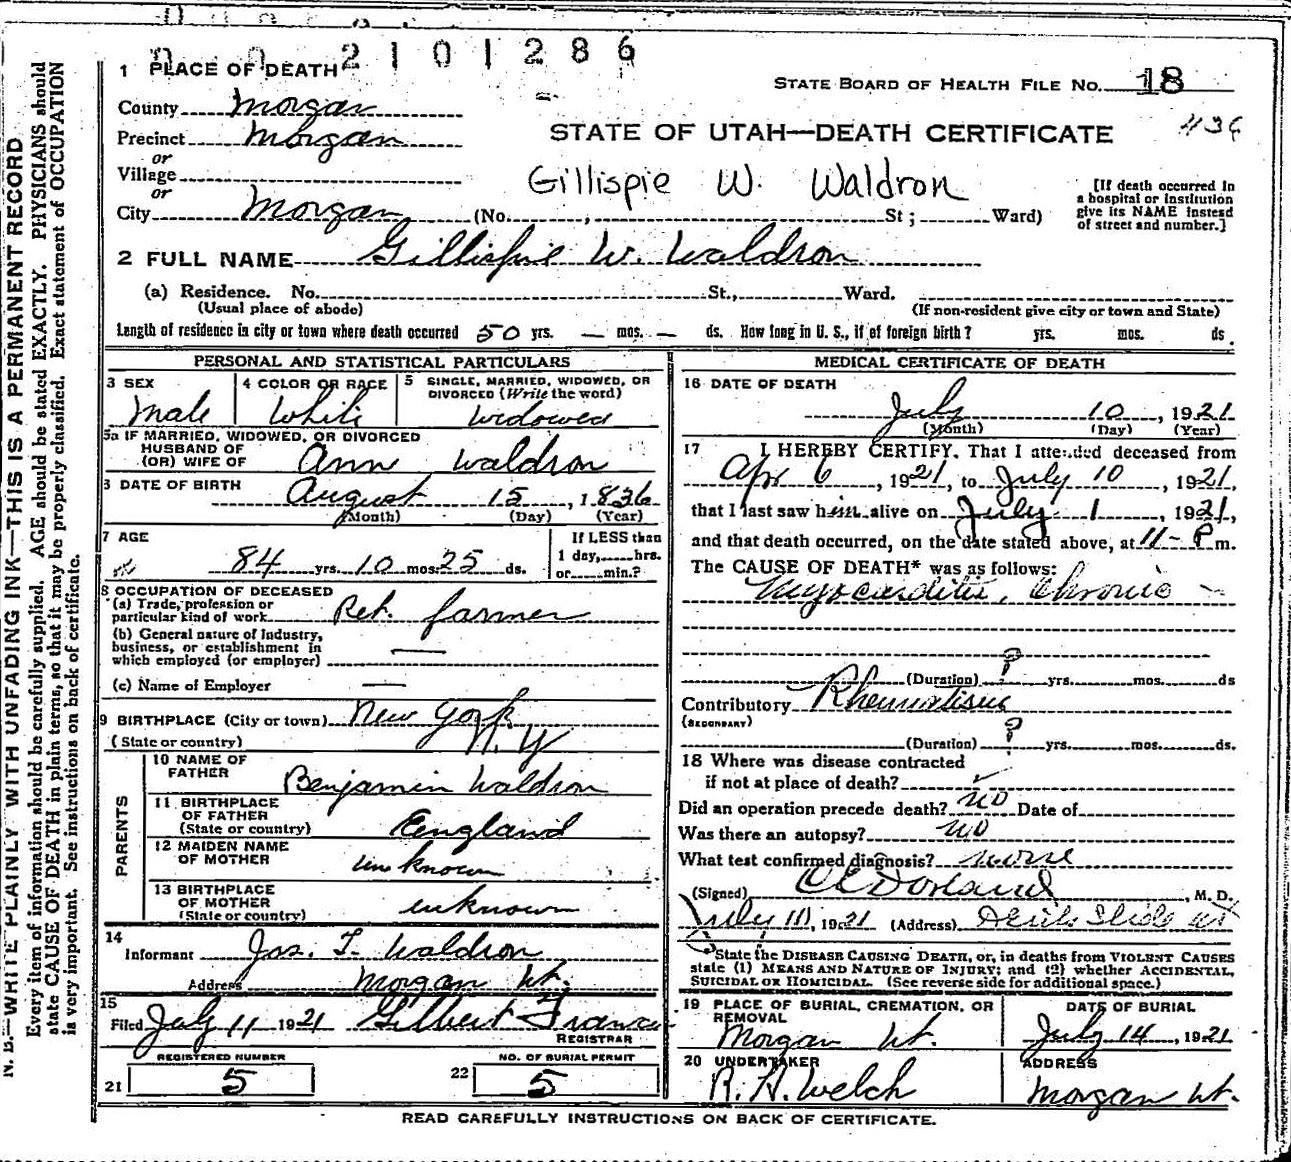 2101286
1 PLACE OF DEATH
STATE BOARD OF HEALTH FILE No. 18
County Morgan
436
Precinct Morgan
STATE OF UTAH—DEATH CERTIFICATE
or
Village
Gillispie W. Waldron
or
City Morgan (No. , St ; Ward)
[If death occurred in
a hospital or institution
give its NAME instead
of street and number.]
2 FULL NAME Gillispie W. Waldron
(a) Residence. No. St., Ward.
(Usual place of abode) (If non-resident give city or town and State)
Length of residence in city or town where death occurred 50 yrs. — mos. — ds. How long in U. S., if of foreign birth? yrs. mos. ds.
PERSONAL AND STATISTICAL PARTICULARS
3 SEX
Male
4 COLOR OR RACE
White
5 SINGLE, MARRIED, WIDOWED, OR
DIVORCED (Write the word)
Widowed
5a IF MARRIED, WIDOWED, OR DIVORCED
HUSBAND OF
(OR) WIFE OF Ann Waldron
6 DATE OF BIRTH
August 15, 1836
(Month) (Day) (Year)
7 AGE
84 yrs. 10 mos. 25 ds.
If LESS than
1 day, hrs.
or min.?
8 OCCUPATION OF DECEASED
(a) Trade, profession or
particular kind of work Ret. farmer
(b) General nature of Industry,
business, or establishment in
which employed (or employer) —
(c) Name of Employer —
9 BIRTHPLACE (City or town) New York
(State or country) N. Y
PARENTS
10 NAME OF
FATHER Benjamin Waldron
11 BIRTHPLACE
OF FATHER
(State or country) England
12 MAIDEN NAME
OF MOTHER unknown
13 BIRTHPLACE
OF MOTHER
(State or country) unknown
14
Informant Jas. T. Waldron
Address Morgan Ut.
15
Filed July 11 1921 Gilbert Francis
REGISTRAR
REGISTERED NUMBER
21 5
NO. OF BURIAL PERMIT
22 5
MEDICAL CERTIFICATE OF DEATH
16 DATE OF DEATH
July 10, 1921
(Month) (Day) (Year)
17 I HEREBY CERTIFY, That I attended deceased from
Apr 6, 1921, to July 10, 1921,
that I last saw him alive on July 1, 1921,
and that death occurred, on the date stated above, at 11-P m.
The CAUSE OF DEATH* was as follows:
Myocarditis, Chronic
(Duration) ? yrs. mos. ds
Contributory Rheumatism
(SECONDARY)
(Duration) ? yrs. mos. ds.
18 Where was disease contracted
if not at place of death?
Did an operation precede death? no Date of
Was there an autopsy? no
What test confirmed diagnosis? none
(Signed) Dorland, M. D.
July 11, 1921 (Address) Devils Slide Ut
*State the DISEASE CAUSING DEATH, or, in deaths from VIOLENT CAUSES
state (1) MEANS AND NATURE OF INJURY; and (2) whether ACCIDENTAL,
SUICIDAL OR HOMICIDAL. (See reverse side for additional space.)
19 PLACE OF BURIAL, CREMATION, OR
REMOVAL
Morgan Ut.
DATE OF BURIAL
July 14, 1921
20 UNDERTAKER
R. H. Welch
ADDRESS
Morgan Ut.
READ CAREFULLY INSTRUCTIONS ON BACK OF CERTIFICATE.
N. B.—WRITE PLAINLY WITH UNFADING INK—THIS IS A PERMANENT RECORD
Every item of information should be carefully supplied. AGE should be stated EXACTLY. PHYSICIANS should
state CAUSE OF DEATH in plain terms, so that it may be properly classified. Exact statement of OCCUPATION
is very important. See instructions on back of certificate.